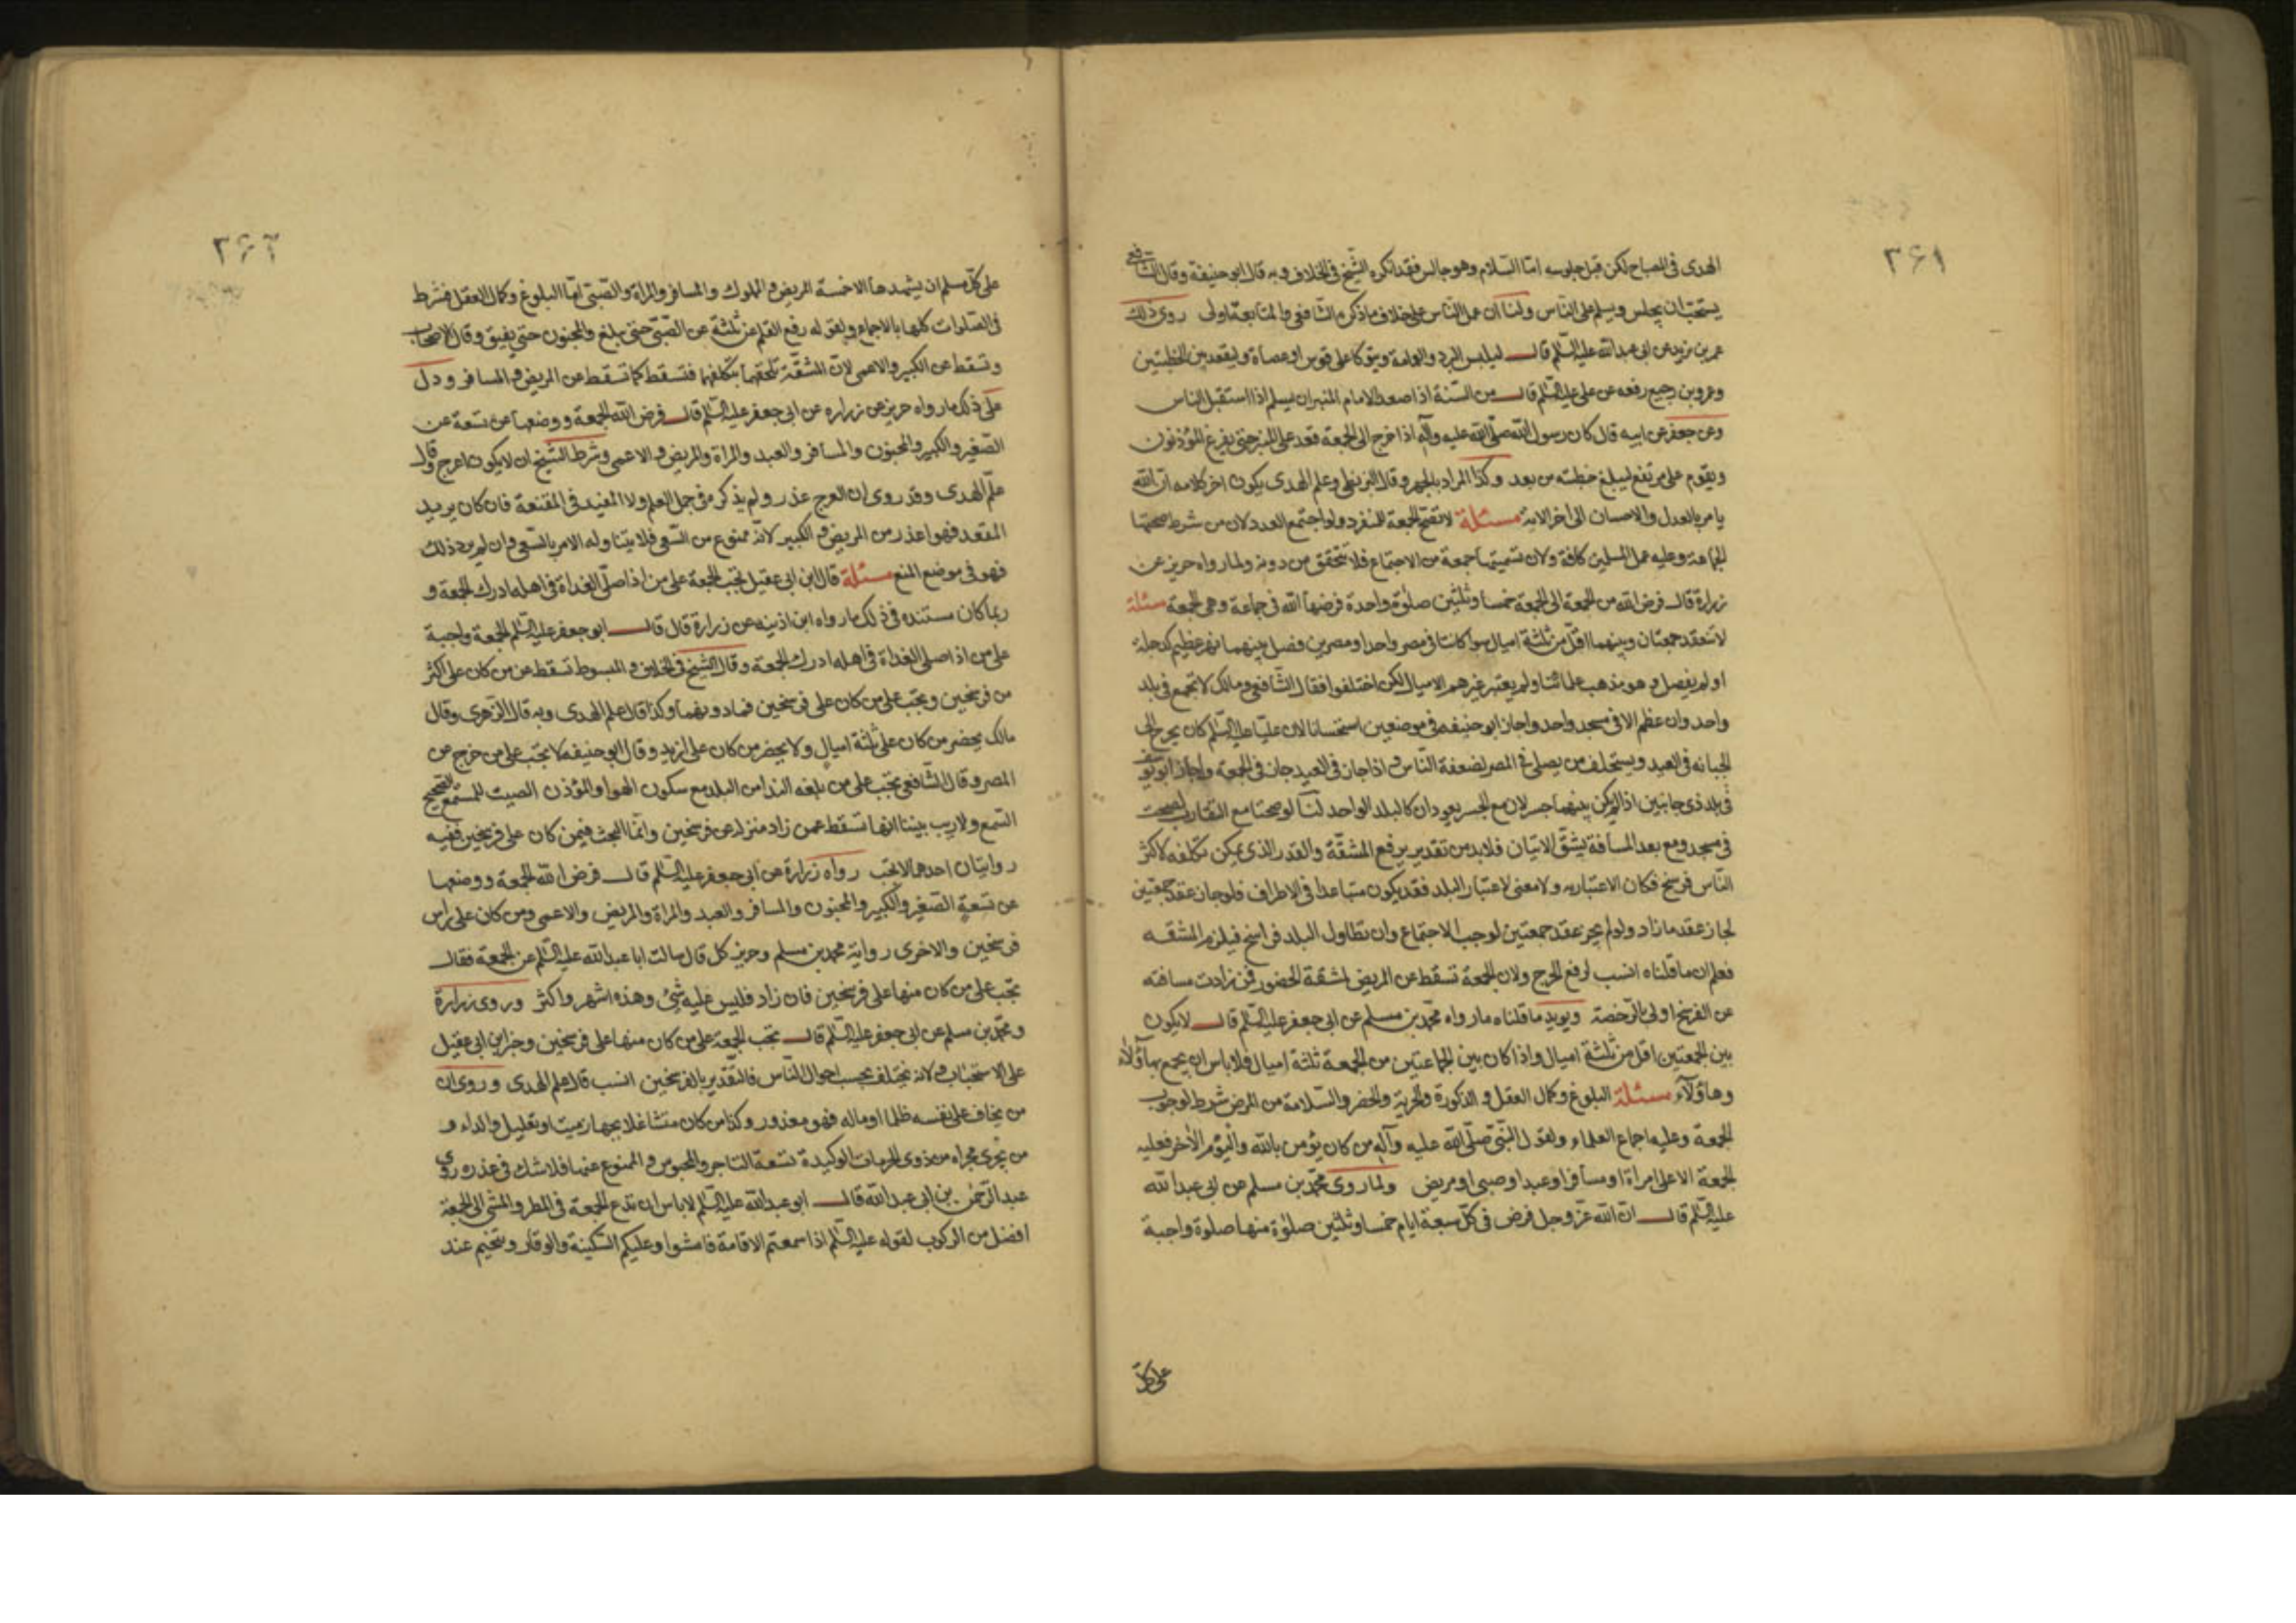 ۳۶۱
الهدى فى المصباح لكن قبل جلوسه امّا السّلام وهو جالس فقد انكره الشّيخ فى الخلاف وبه قال ابو حنيفة وقال الشّافعى
يستحبّ ان يجلس ويسلم على النّاس ولنا ان عمل النّاس على خلاف ما ذكره الشّافعى والمتابعة اولى روى ذلك
عمر بن يزيد عن ابى عبد الله عليه السّلم قال ليلبس البرد والعمامة ويتوكا على قوس او عصاة وليقعد بين الخطبتين
وعمرو بن جميع رفعه عن على عليه السّلم قال من السّنة اذا صعد الامام المنبر ان يسلم اذا استقبل الناس
وعن جعفر عن ابيه قال كان رسول الله صلّى الله عليه وآله اذا خرج الى الجمعة قعد على المنبر حتى يفرغ المؤذنون
ويقوم على مرتفع ليبلغ خطبته من بعد وكذا المراد بالجهر وقال البزنطى وعلم الهدى يكون اخر كلامه انّ الله
يامر بالعدل والاحسان الى اخر الاية مسئلة لا تصح الجمعة للمنفرد ولو اجتمع العدد لان من شرط صحتها
الجماعة وعليه عمل المسلمين كافة ولان تسميتها جمعة من الاجتماع فلا تتحقق من دونه ولما رواه حريز عن
زرارة قال فرض الله من الجمعة الى الجمعة خمسا وثلثين صلوة واحدة فرضها الله فى جماعة وهى الجمعة مسئلة
لا تنعقد جمعتان وبينهما اقلّ من ثلثة اميال سوا كانتا فى مصر واحد او مصرين فصل بينهما نهر عظيم كدجلة
او لم يفصل وهو مذهب علمائنا ولم يعتبر غيرهم الاميال لكن اختلفوا فقال الشّافعى ومالك لا تجمع فى بلد
واحد وان عظم الا فى مسجد واحد واجاز ابو حنيفه فى موضعين استحسانا لان عليّا عليه السّلم كان يخرج الى
الجبانه فى العيد ويستخلف من يصلى فى المصر لضعفة النّاس واذا جاز فى العيد جاز فى الجمعة واجاز ابو يوسف
فى بلد ذى جانبين اذا لم يكن بينهما جسر لان مع الجسر يعودان كالبلد الواحد لنا لو صحتا مع التقارب لصحت
فى مسجد ومع بعد المسافة يشقّ الاتيان فلابد من تقدير يرفع المشقّة والقدر الذى يمكن تكلفه لاكثر
النّاس فرسخ فكان الاعتبار به ولا معنى لاعتبار البلد فقد يكون متباعدا فى الاطراف فلو جاز عقد جمعتين
لجاز عقد ما زاد ولو لم يجز عقد جمعتين لوجب الاجتماع وان تطاول البلد فراسخ فيلزم المشقه
فعلم ان ما قلناه انسب لرفع الحرج ولان الجمعة تسقط عن المريض لمشقة الحضور فمن زادت مسافته
عن الفرسخ اولى بالرّخصة ويويد ما قلناه ما رواه محمّد بن مسلم عن ابى جعفر عليه السّلم قال لا يكون
بين الجمعتين اقل من ثلثة اميال واذا كان بين الجماعتين من الجمعة ثلثة اميال فلا باس ان يجمع بها هؤلاء
وهاؤلآء مسئلة البلوغ وكمال العقل والذكورة والحرية والحضر والسّلامة من المرض شرط لوجوب
الجمعة وعليه اجماع العلماء ولقول النّبىّ صلّى الله عليه وآله من كان يؤمن بالله واليوم الاخر فعليه
الجمعة الا على امراة او مسافر او عبد او صبى او مريض ولما روى محمّد بن مسلم عن ابى عبد الله
عليه السّلم قال انّ الله عزّ وجل فرض فى كلّ سبعة ايام خمسا وثلثين صلوة منها صلوة واجبة
على كلّ
۳۶۲
على كلّ مسلم ان يشهدها الا خمسة المريض والمملوك والمسافر والمراة والصّبى امّا البلوغ وكمال العقل فشرط
فى الصّلوات كلها بالاجماع ولقوله رفع القلم عن ثلثة عن الصّبىّ حتى يبلغ والمجنون حتى يفيق وقال الاصحاب
وتسقط عن الكبير والاعمى لانّ المشقّة تلحقهما بتكلفهما فتسقط كما تسقط عن المريض والمسافر ودل
على ذلك ما رواه حريز عن زراره عن ابى جعفر عليه السّلم قال فرض الله الجمعة ووضعها عن تسعة عن
الصّغير والكبير والمجنون والمسافر والعبد والمراة والمريض والاعمى وشرط الشّيخ ان لا يكون اعرج وقال
علم الهدى وقد روى ان العرج عذر ولم يذكره فى جمل العلم ولا المفيد فى المقنعة فان كان يريد
المقعد فهو اعذر من المريض والكبير لانّه ممنوع من السّعى فلا يتناوله الامر بالسّعى وان لم يرد ذلك
فهو فى موضع المنع مسئلة قال ابن ابى عقيل تجب الجمعة على من اذا صلّى الغداة فى اهله ادرك الجمعة و
ربما كان مستنده فى ذلك ما رواه ابن اذينه عن زرارة قال قال ابو جعفر عليه السّلم الجمعة واجبة
على من اذا صلى الغداة فى اهله ادرك الجمعة وقال الشّيخ فى الخلاف والمبسوط تسقط عن من كان على اكثر
من فرسخين وتجب على من كان على فرسخين فما دونهما وكذا قال علم الهدى وبه قال الزّهرى وقال
مالك يحضر من كان على ثلثة اميال ولا يحضر من كان على ازيد وقال ابو حنيفه لا تجب على من خرج عن
المصر وقال الشّافعى تجب على من بلغه الندا من البلد مع سكون الهوا والمؤذن الصيت للمستمع الصّحيح
السّمع ولا ريب بيننا انها تسقط عمن زاد منزله عن فرسخين وانّما البحث فيمن كان على فرسخين ففيه
روايتان احدهما لا تجب رواه زرارة عن ابى جعفر عليه السّلم قال فرض الله الجمعة ووضعها
عن تسعة الصّغير والكبير والمجنون والمسافر والعبد والمراة والمريض والاعمى ومن كان على راس
فرسخين والاخرى رواية محمد بن مسلم وحريز كل قال سالت ابا عبد الله عليه السّلم عن الجمعة فقال
تجب على من كان منها على فرسخين فان زاد فليس عليه شئ وهذه اشهر واكثر وروى زرارة
ومحمّد بن مسلم عن ابى جعفر عليه السّلم قال تجب الجمعة على من كان منها على فرسخين وخبر ابن ابى عقيل
على الاستحباب ولانه يختلف بحسب احوال النّاس فالتقدير بالفرسخين انسب قال علم الهدى وروى ان
من يخاف على نفسه ظلما او ماله فهو معذور وكذا من كان متشاغلا بجهاز ميت او بعليل والداه و
من يجرى مجراه من ذوى الحرمات الوكيدة تسعة التاجر والمحبوس والممنوع عنها فلا شك فى عذره روى
عبد الرّحمن بن ابى عبد الله قال ابو عبد الله عليه السّلم لا باس ان تدع الجمعة فى المطر والمشى الى الجمعة
افضل من الركوب لقوله عليه السّلم اذا سمعتم الاقامة فامشوا وعليكم السّكينة والوقار عند